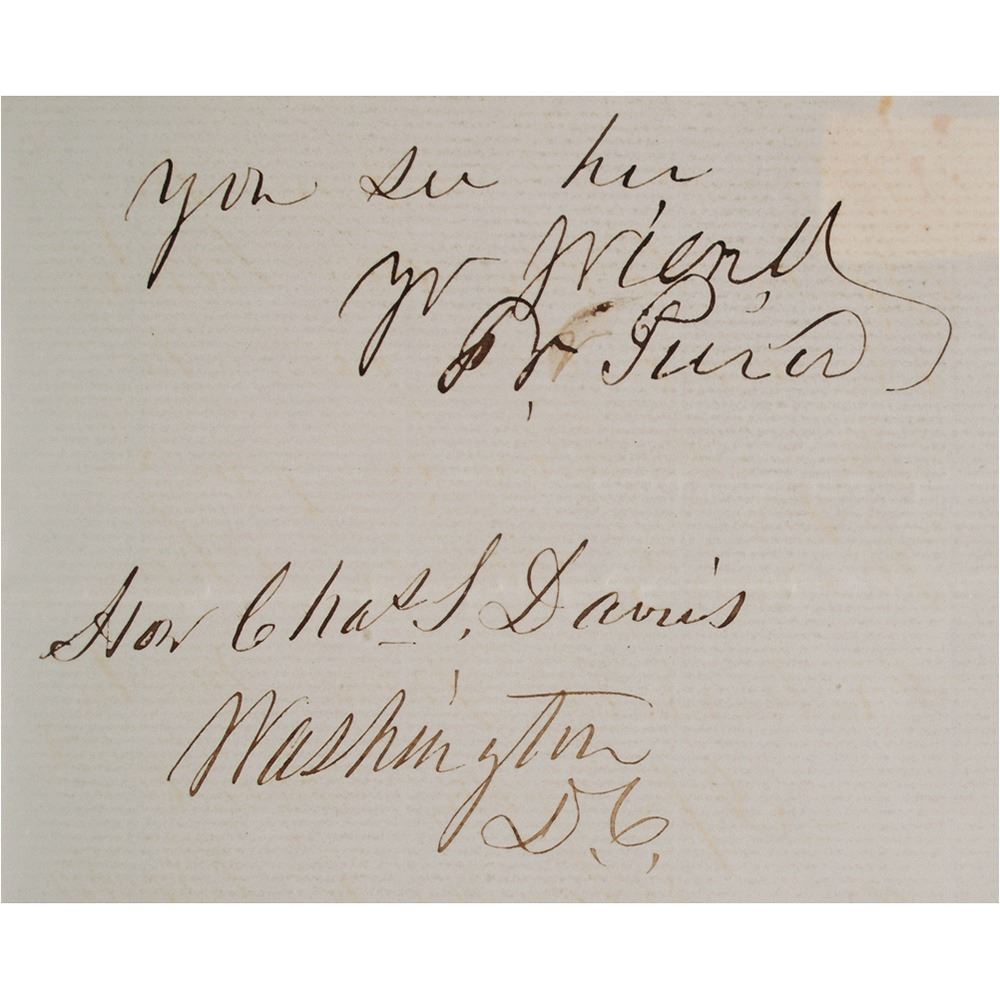 you see her
yr friend
Fr. Pierce
Hon Chas S. Daveis
Washington
D.C.